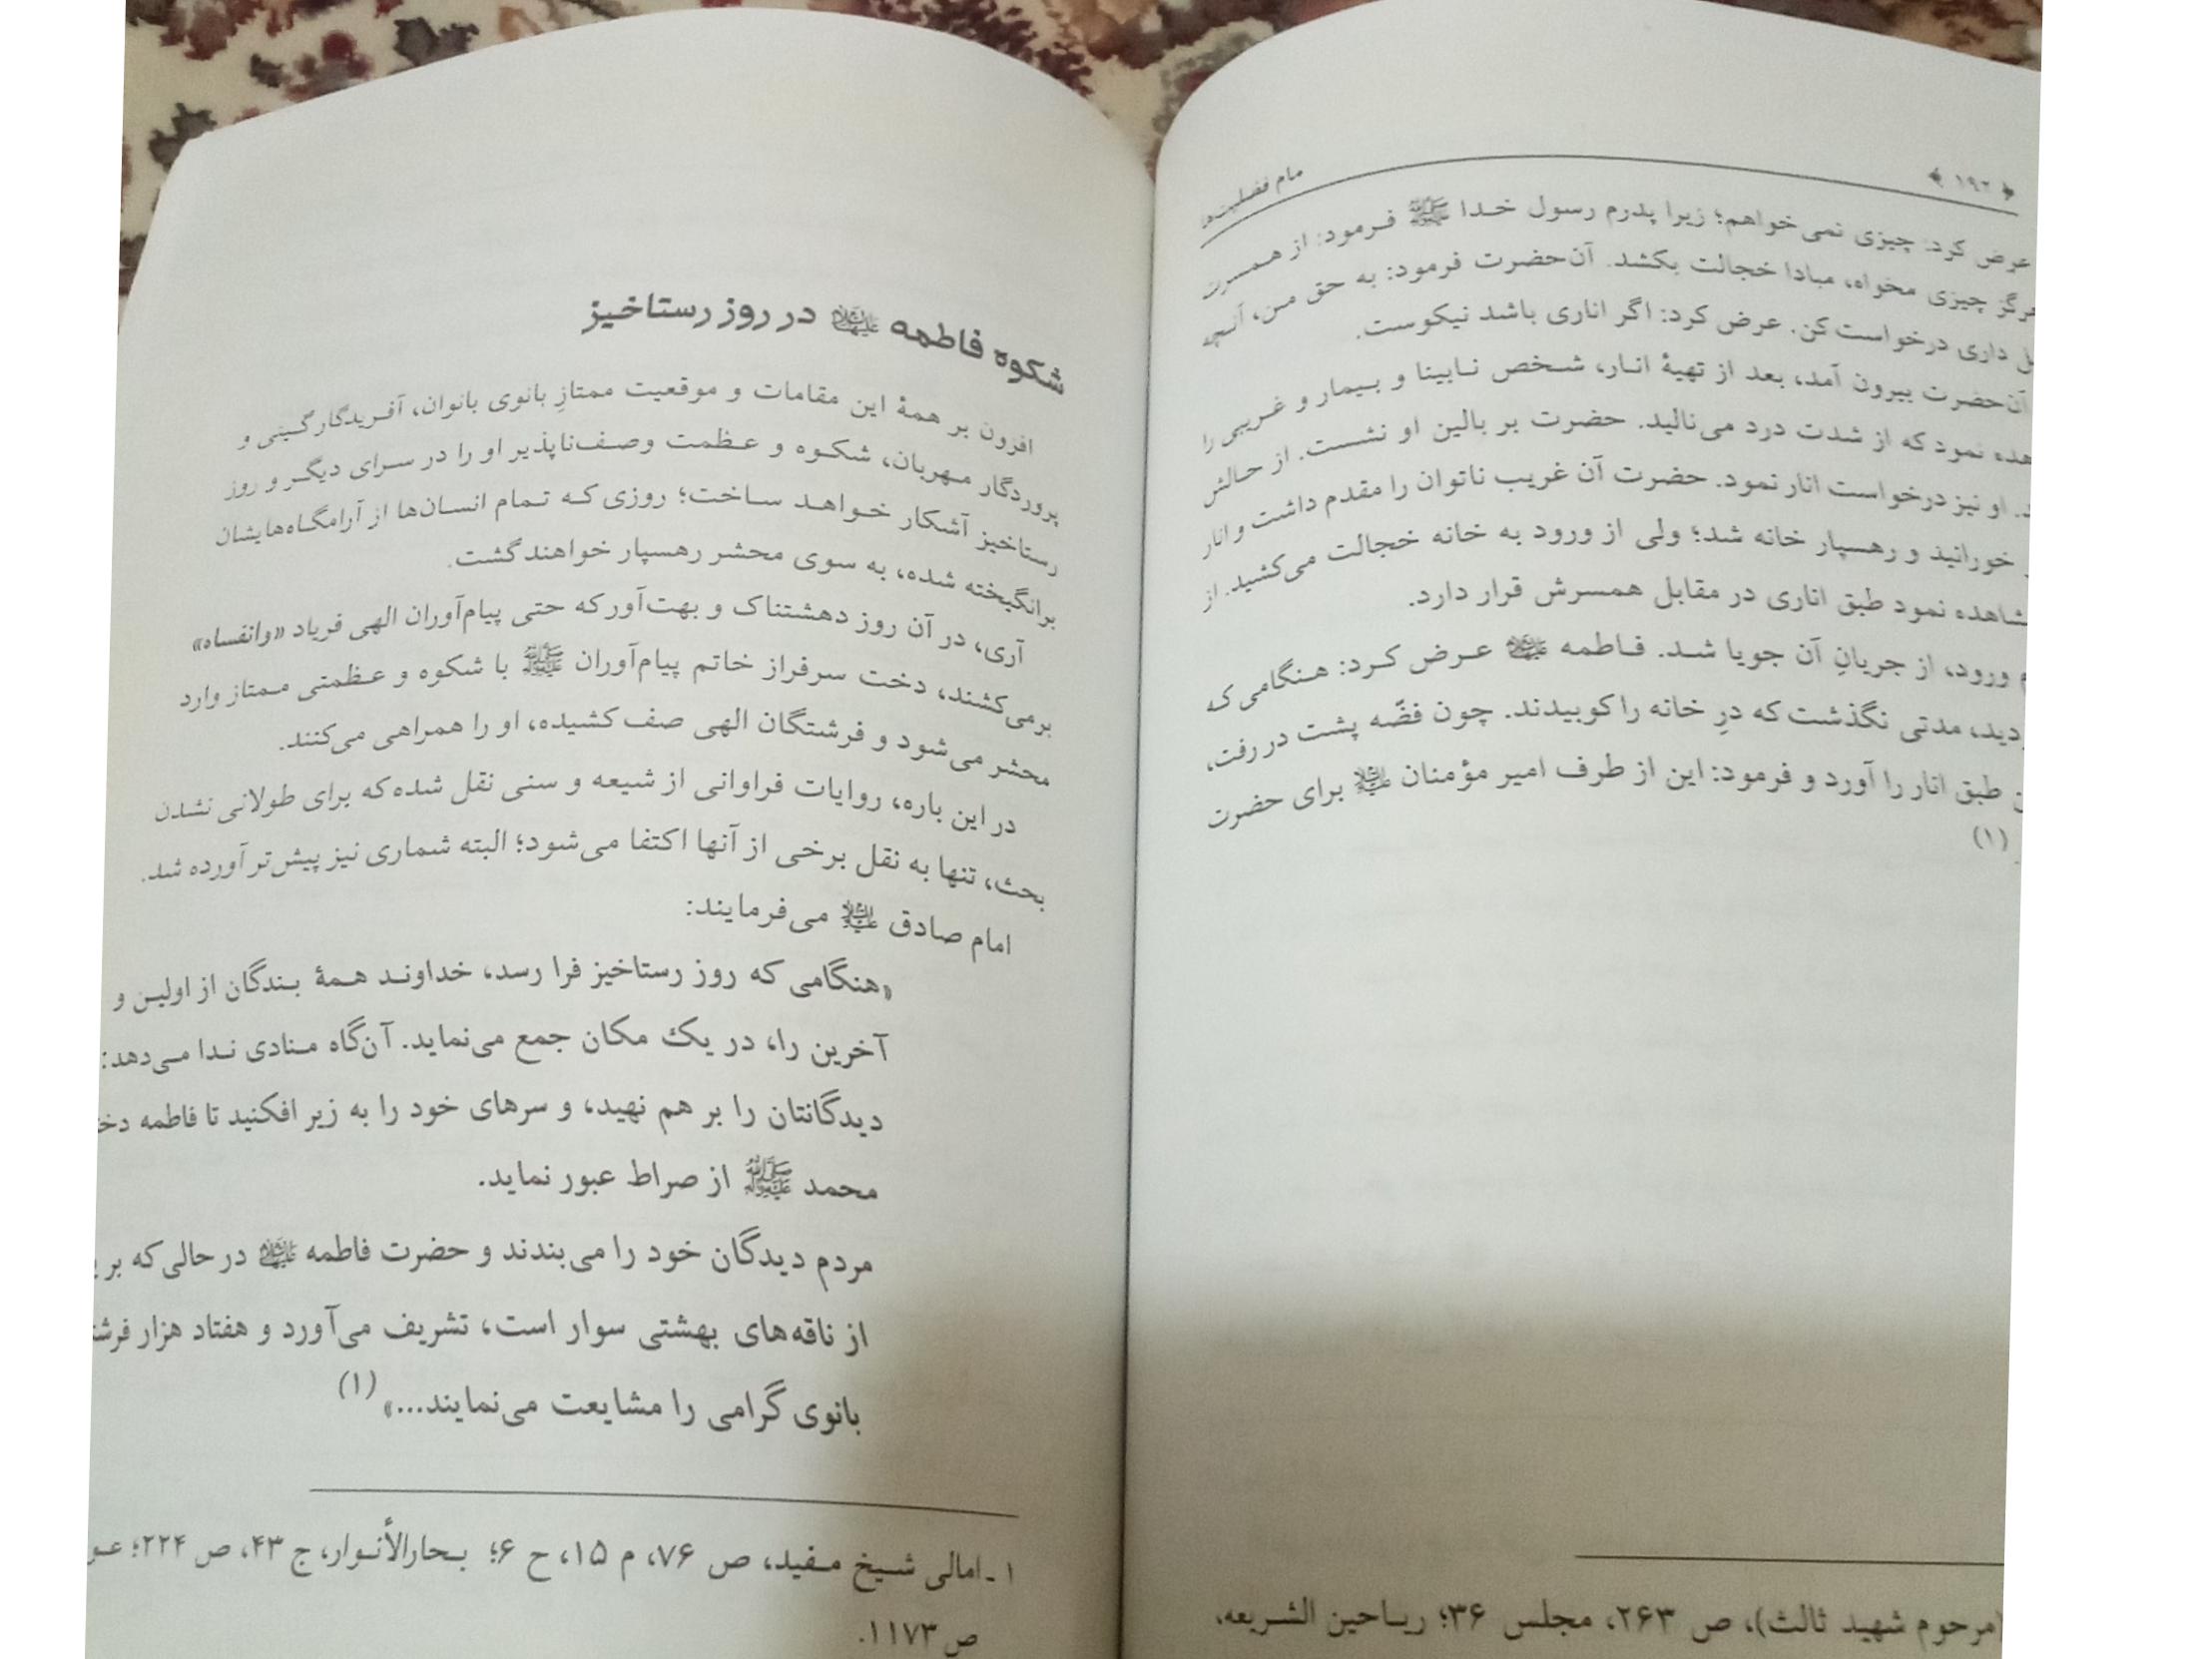 ﴿ ١٩٢ ﴾
عرض کرد: چیزی نمی‌خواهم؛ زیرا پدرم رسول خدا ﷺ فرمود: از همسرت
چیزی مخواه، مبادا خجالت بکشد. آن‌حضرت فرمود: به حق من، آنچه
داری درخواست کن. عرض کرد: اگر اناری باشد نیکوست.
آن‌حضرت بیرون آمد، بعد از تهیهٔ انار، شخص نابینا و بیمار و غریبی را
نمود که از شدت درد می‌نالید. حضرت بر بالین او نشست. از حالش
او نیز درخواست انار نمود. حضرت آن غریب ناتوان را مقدم داشت و انار
خورانید و رهسپار خانه شد؛ ولی از ورود به خانه خجالت می‌کشید. از
نمود طبق اناری در مقابل همسرش قرار دارد.
ورود، از جریانِ آن جویا شد. فاطمه علیها السلام عرض کرد: هنگامی که
مدتی نگذشت که درِ خانه را کوبیدند. چون فضّه پشت در رفت،
طبق انار را آورد و فرمود: این از طرف امیر مؤمنان علیه السلام برای حضرت
. (١)
(مرحوم شهید ثالث)، ص ۲۶۳، مجلس ۳۶؛ ریاحین الشریعه،
شکوه فاطمه علیها السلام در روز رستاخیز
افزون بر همهٔ این مقامات و موقعیت ممتازِ بانوی بانوان، آفریدگار گیتی و
پروردگار مهربان، شکوه و عظمت وصف‌ناپذیر او را در سرای دیگر و روز
رستاخیز آشکار خواهد ساخت؛ روزی که تمام انسان‌ها از آرامگاه‌هایشان
برانگیخته شده، به سوی محشر رهسپار خواهند گشت.
آری، در آن روز دهشتناک و بهت‌آور که حتی پیام‌آوران الهی فریاد «وانفساه»
برمی‌کشند، دخت سرفراز خاتم پیام‌آوران ﷺ با شکوه و عظمتی ممتاز وارد
محشر می‌شود و فرشتگان الهی صف کشیده، او را همراهی می‌کنند.
در این باره، روایات فراوانی از شیعه و سنی نقل شده که برای طولانی نشدن
بحث، تنها به نقل برخی از آنها اکتفا می‌شود؛ البته شماری نیز پیش‌تر آورده شد.
امام صادق علیه السلام می‌فرمایند:
«هنگامی که روز رستاخیز فرا رسد، خداوند همهٔ بندگان از اولین و
آخرین را، در یک مکان جمع می‌نماید. آن‌گاه منادی ندا می‌دهد:
دیدگانتان را بر هم نهید، و سرهای خود را به زیر افکنید تا فاطمه
محمد ﷺ از صراط عبور نماید.
مردم دیدگان خود را می‌بندند و حضرت فاطمه علیها السلام در حالی که بر
از ناقه‌های بهشتی سوار است، تشریف می‌آورد و هفتاد هزار
بانوی گرامی را مشایعت می‌نمایند...» (١)
۱ ـ امالی شیخ مفید، ص ۷۶، م ۱۵، ح ۶؛ بحارالأنوار، ج ۴۳، ص ۲۲۴؛
ص ۱۱۷۳.